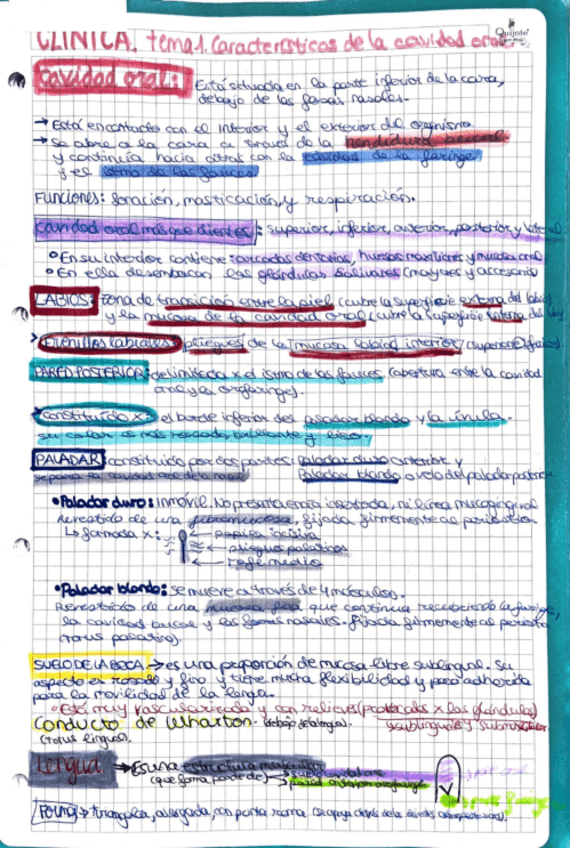 CLÍNICA. tema1. Características de la cavidad oral
Quijote
Cavidad oral: Está situada en la parte inferior de la cara,
debajo de las fosas nasales.
→ Está en contacto con el interior y el exterior del organismo.
→ Se abre a la cara a través de la hendidura bucal
y continúa hacia atrás con la cavidad de la faringe
y el istmo de las fauces
Funciones: fonación, masticación, y respiración.
Cavidad oral más que dientes: superior, inferior, anterior, posterior y lateral
En su interior contiene: arcadas dentarias, huesos maxilares y mucosa oral
En ella desembocan las glándulas salivares (mayores y accesorio
LABIOS: zona de transición entre la piel (cubre la superficie externa del labio)
y la mucosa de la cavidad oral (cubre la superficie interna del labio
Frenillos labiales: pliegues de la mucosa labial interior (superior/inferior)
PARED POSTERIOR: delimitada x el istmo de las fauces (abertura entre la cavidad
oral y la orofaringe).
Constituido x: el borde inferior del paladar blando y la úvula.
su color es más rosado, brillante y liso.
PALADAR constituido por dos partes: Paladar duro anterior y
separa la cavidad oral de la nasal Paladar blando o velo del paladar posterior
• Paladar duro: inmóvil. No presenta encía insertada, ni línea mucogingival
Revestido de una fibromucosa, fijada firmemente al periostio
↳ formada x: papila incisiva
pliegues palatinos
rafe medio
• Paladar blando: se mueve a través de 4 músculos.
Revestido de una mucosa fina que continua recubriendo la faringe,
la cavidad bucal y las fosas nasales. Fijada firmemente al periostio
(torus palatino)
SUELO DE LA BOCA → es una proporción de mucosa libre sublingual. Su
aspecto es rosado y fino y tiene mucha flexibilidad y poco adherida
para la movilidad de la lengua.
Está muy vascularizado y con relieves (provocados x las glándulas)
Conducto de Wharton. (debajo de lengua). sublinguales y submaxilar
(torus lingual).
Lengua → Es una estructura muscular
(que forma parte de) suelo cavidad oral
pared anterior orofaringe
FORMA → triangular, alargada, con punta roma